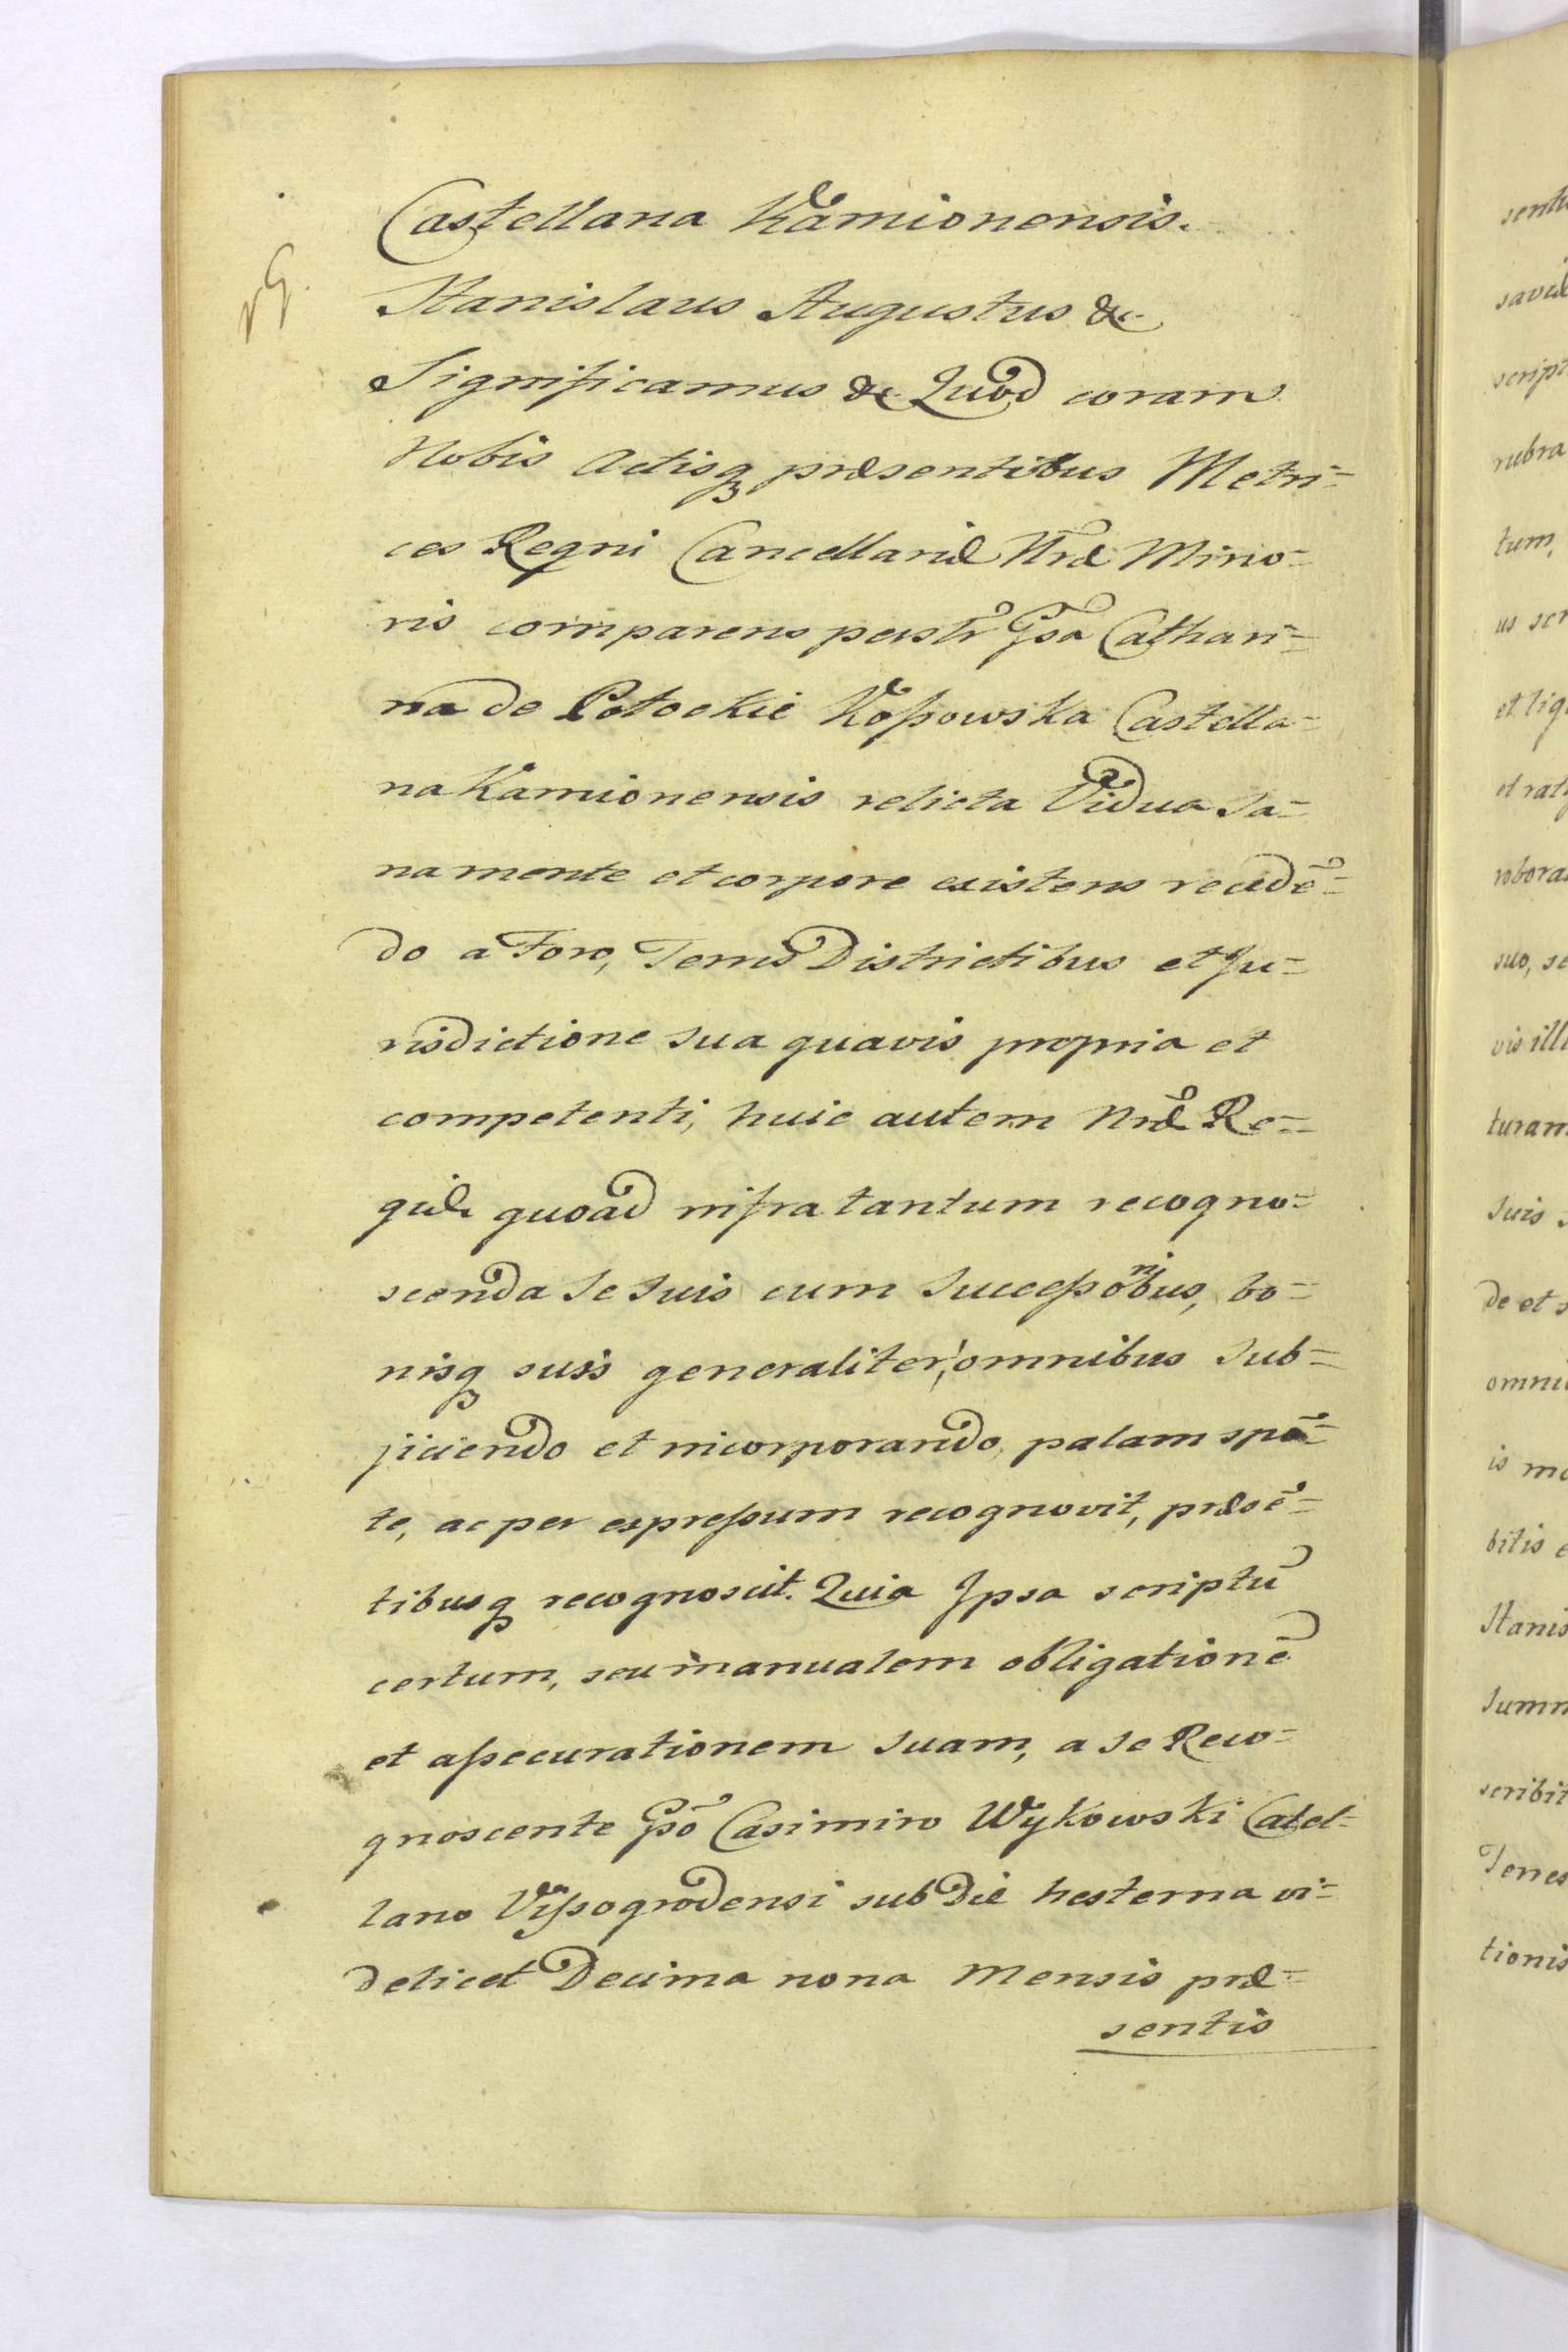 Castellana Kamionensis.
Stanislaus Augustus &c
Significamus &c Quod coram
Nobis Actisq præsentibus Metri=
ces Regni Cancellariæ Nræ Mino=
ris comparens psltr Gsa Cathari=
na de Potockie Koſsowska Castella=
na Kamionensis relicta Vidua Sa=
na mente et corpore existens recedē=
do a Foro, Terris Districtibus et Ju=
risdictione sua quavis propria et
competenti, huic autem Nræ Re=
giæ quoad infra tantum recogno=
scenda Se Suis cum Succeſsoribus, bo=
nisq suis generaliter omnibus Sub=
jiciendo et incorporando, palam spō=
te, ac per expreſsum recognovit, præsē=
tibusq recognoscit. Quia Ipsa scriptū
certum, seu manualem obligationē
et aſsecurationem Suam, a se Reco=
gnoscente Gso Casimiro Wykowski Catel=
lano Viſsogrodensi sub Die hesterna vi=
delicet Decima nona Mensis præ=
sentis
sentu
script
rubra
tum,
us scr
et lig
et rat
robora
suo, se
vis ill
turam
Suis s
de et s
omni
is mo
bilis e
Stanis
Summ
scribit
Terres
tionis